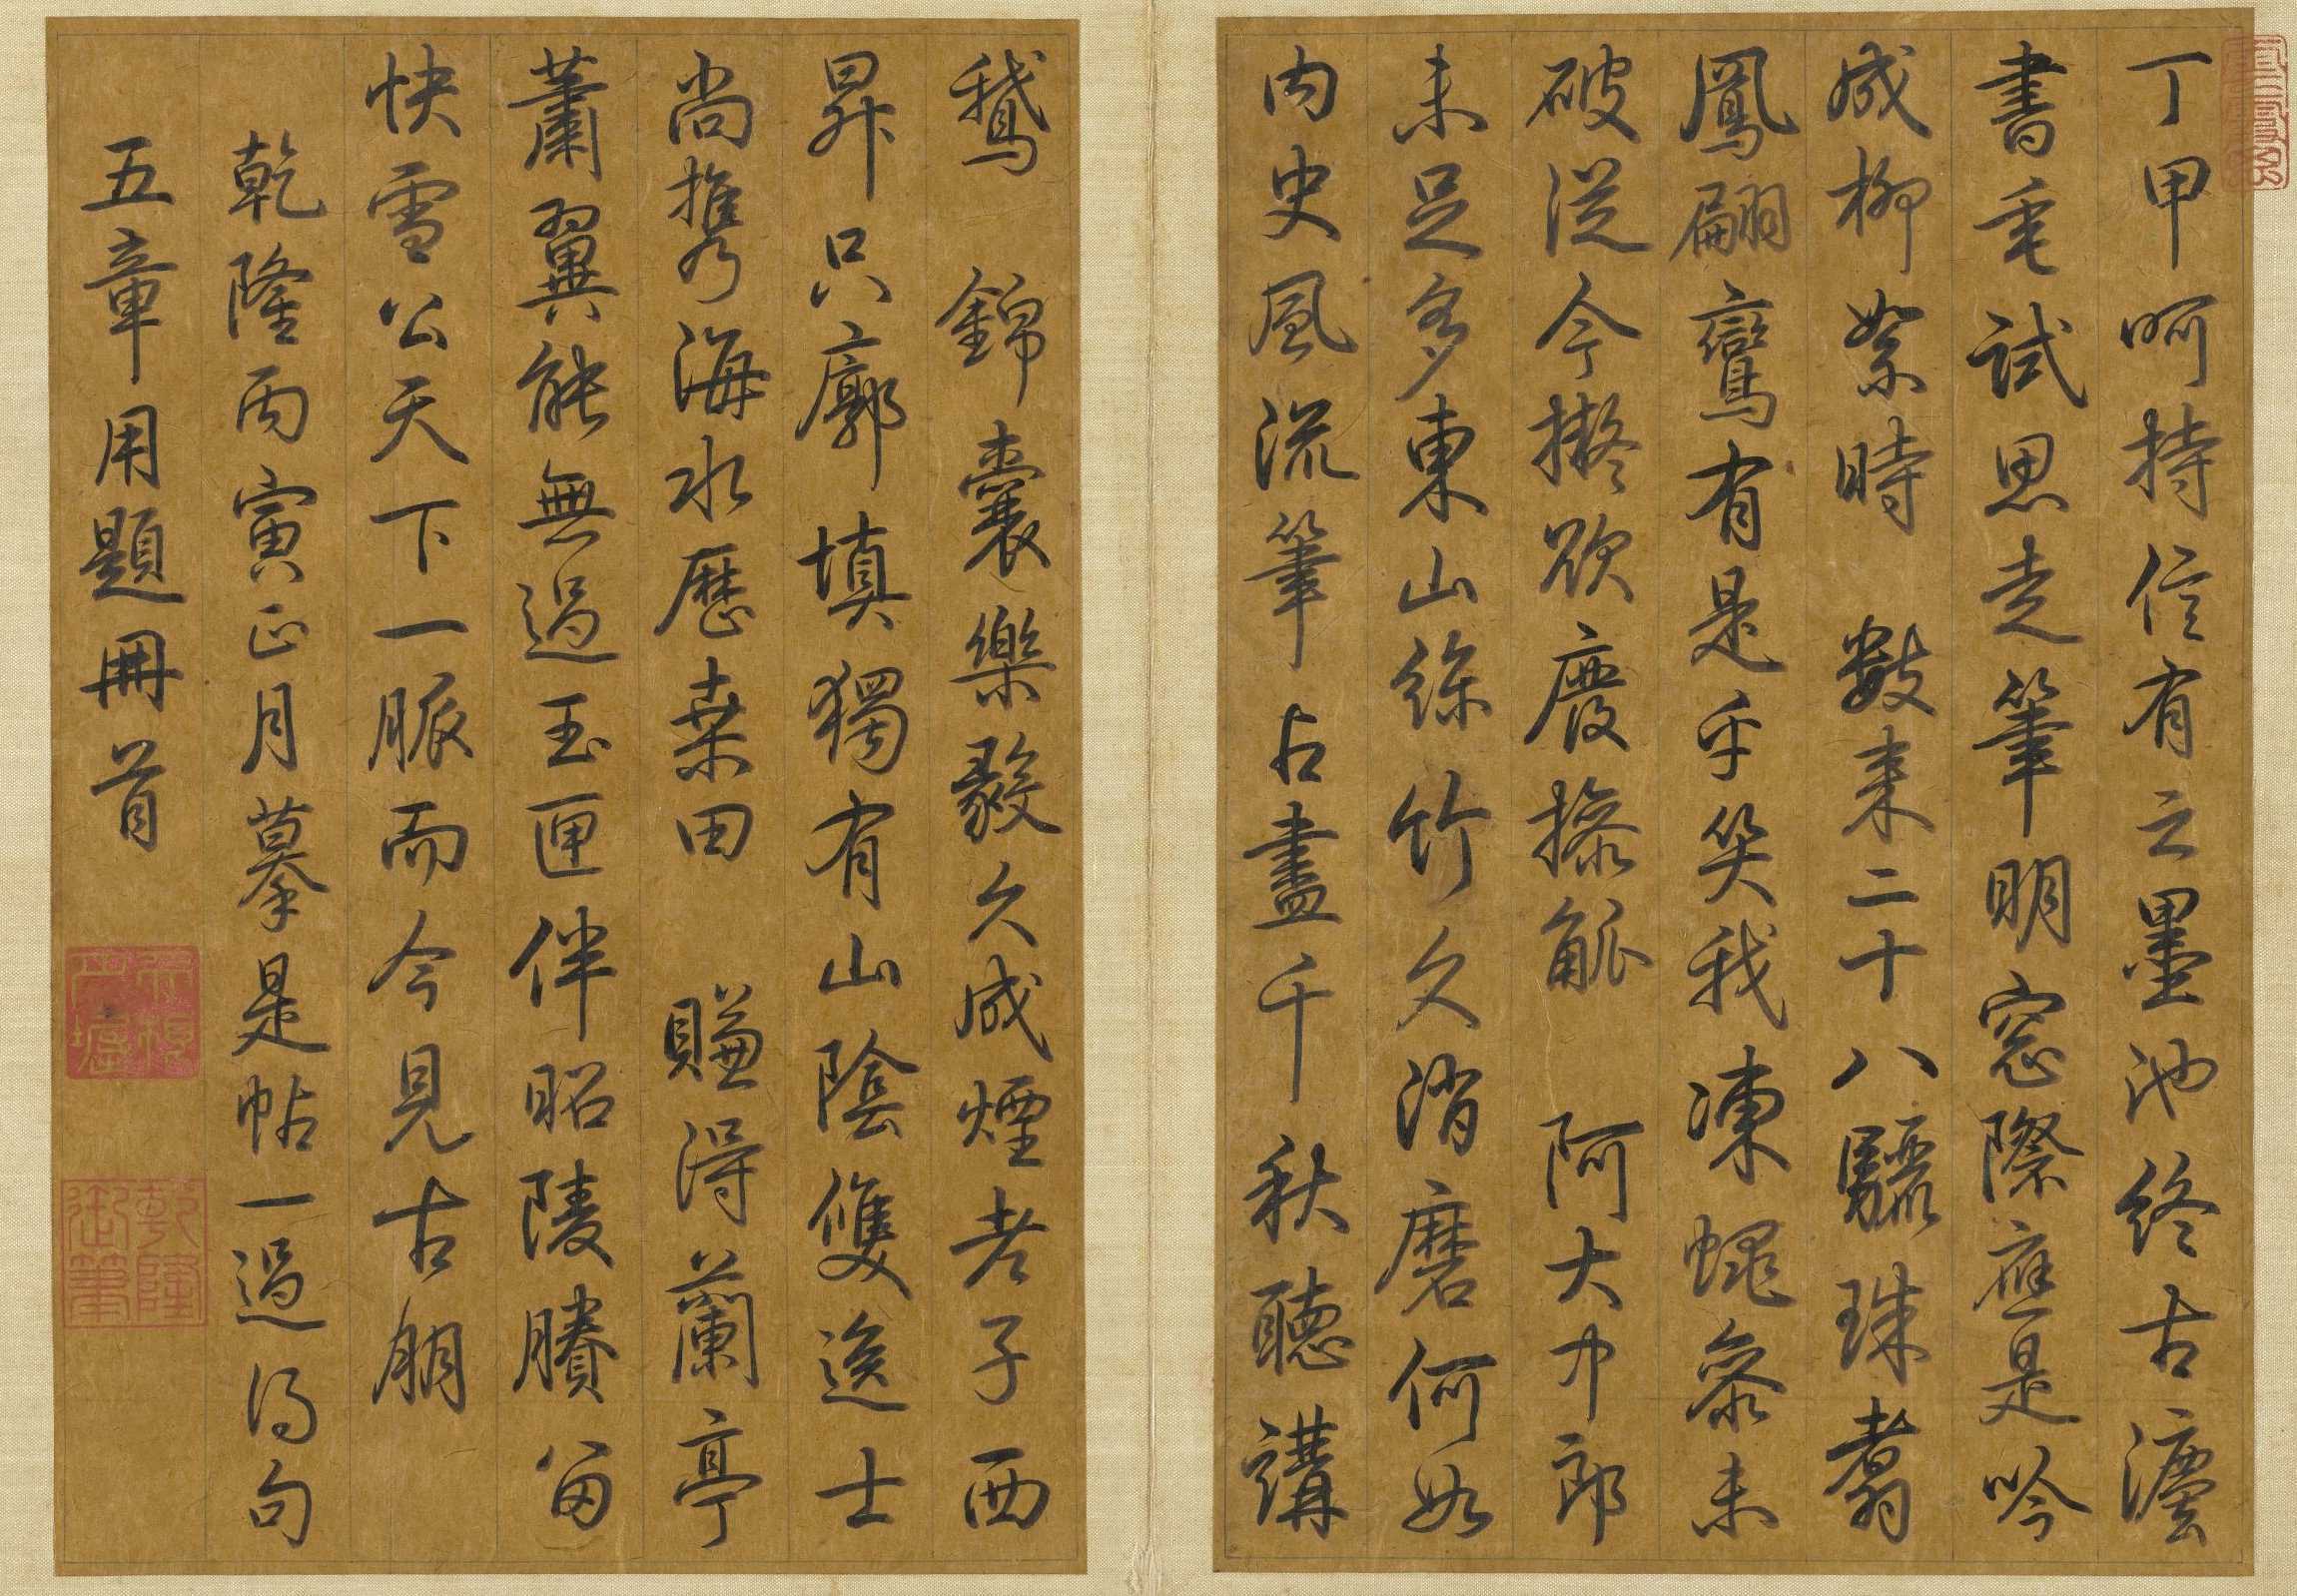 丁甲呵持信有之墨池終古瀁
書毫試思走筆明窓際應是吟
成柳絮時　數來二十八驪珠翥
鳳翩鸞有是乎笑我凍蠅參未
破從今擬欲廢操觚　阿大中郎
未足多東山絲竹久消磨何如
內史風流筆占盡千秋聽講
鵝　錦囊樂毅久成煙老子西
昇只廓填獨有山陰雙逸士
尚攜海水歷桑田　賺得蘭亭
蕭翼能無過玉匣伴昭陵賸留
快雪公天下一脈而今見古朋
乾隆丙寅正月摹是帖一過得句
五章用題冊首
乾隆
御筆